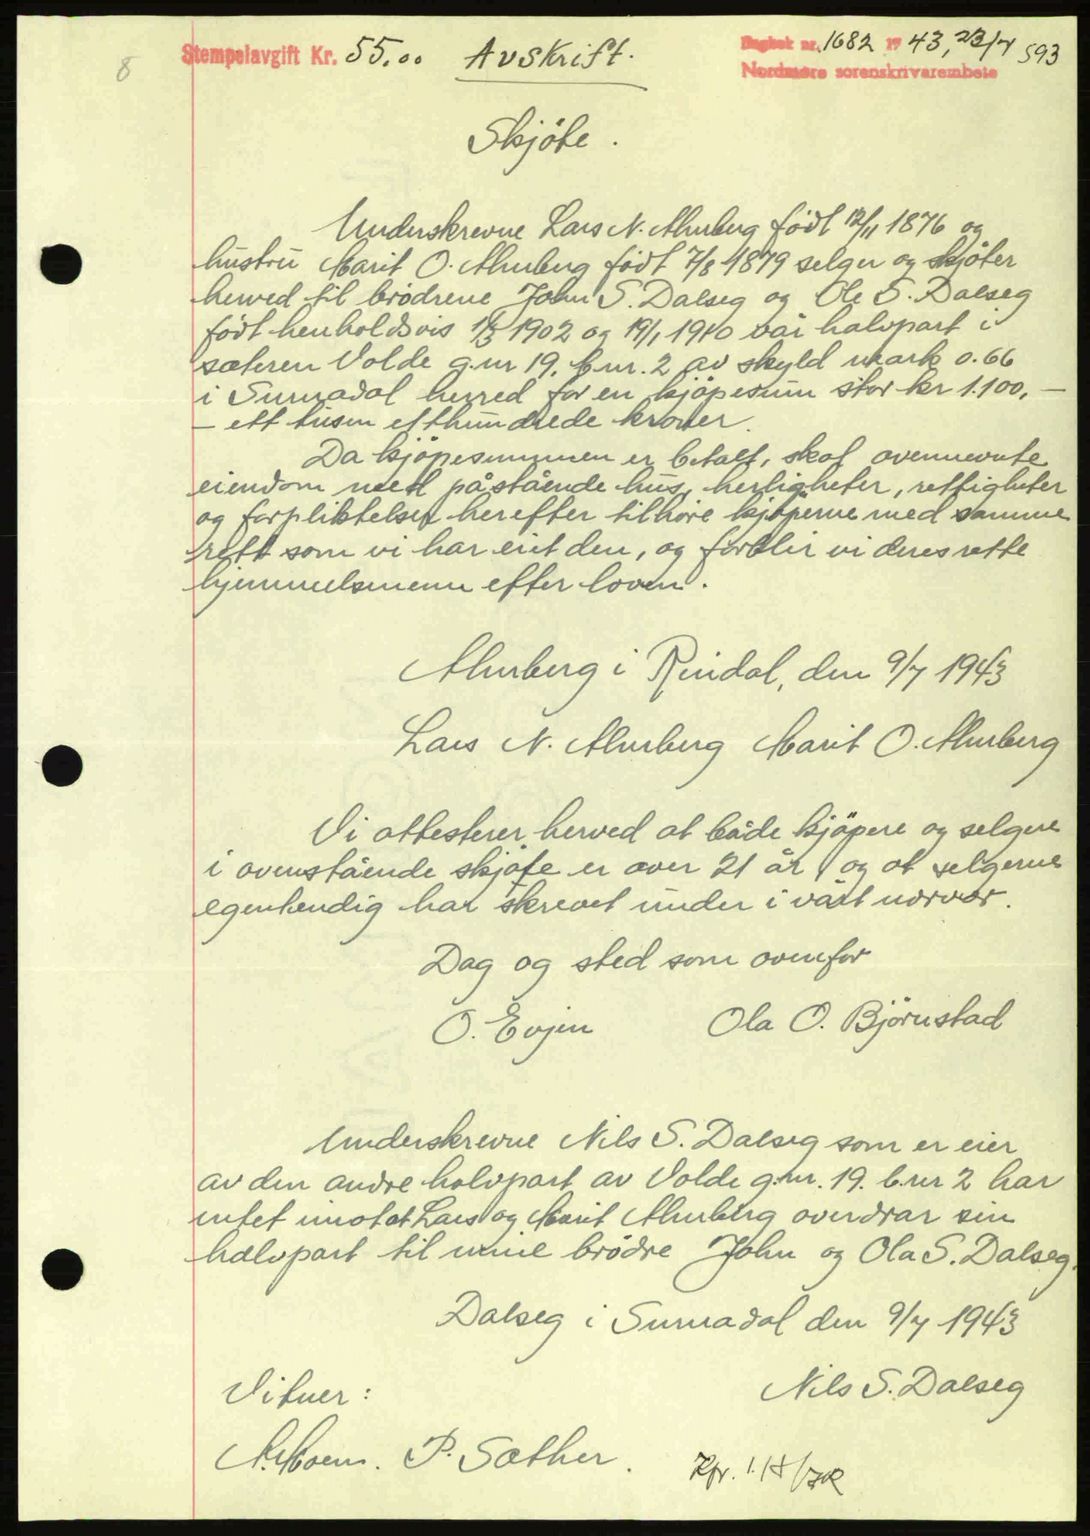 8
Stempelavgift Kr. 55.00 Avskrift.
Dagbok nr. 1682 19 43, 23/7 593
Nordmøre sorenskrivarembete
Skjöte.
Underskrevne Lars N. Almberg født 12/11 1876 og
hustru Marit O. Almberg født 7/8 1879 selger og skjöter
herved til brödrene John S. Dalseg og Ole S. Dalseg
født henholdsvis 1902 og 19/1 1910 vår halvpart i
sæteren Volde g.nr 19. b.nr. 2 av skyld mark 0.66
i Surnadal herred for en kjöpesum stor kr 1.100,-
- ett tusen etthundrede kroner.
Da kjöpesummen er betalt, skal ovennevnte
eiendom med påstående hus, herligheter, rettigheter
og forpliktelser herefter tilhöre kjöperne med samme
rett som vi har eiet den, og forblir vi deres rette
hjemmelsmenn efter loven.
Almberg i Rindal, den 9/7 1943
Lars N. Almberg Marit O. Almberg
Vi attesterer herved at både kjöpere og selgere
i ovenstående skjöte er over 21 år, og at selgerne
egenhendig har skrevet under i vårt nærvær.
Dag og sted som ovenfor
O. Evjen Ola O. Björnstad
Underskrevne Nils S. Dalseg som er eier
av den andre halvpart av Volde g.nr. 19. b.nr 2 har
intet imot at Lars og Marit Almberg overdrar sin
halvpart til mine brödre John og Ola S. Dalseg.
Dalseg i Surnadal den 9/7 1943
Vitner: Nils S. Dalseg
A. Moen. P. Sæther.
Kfr.